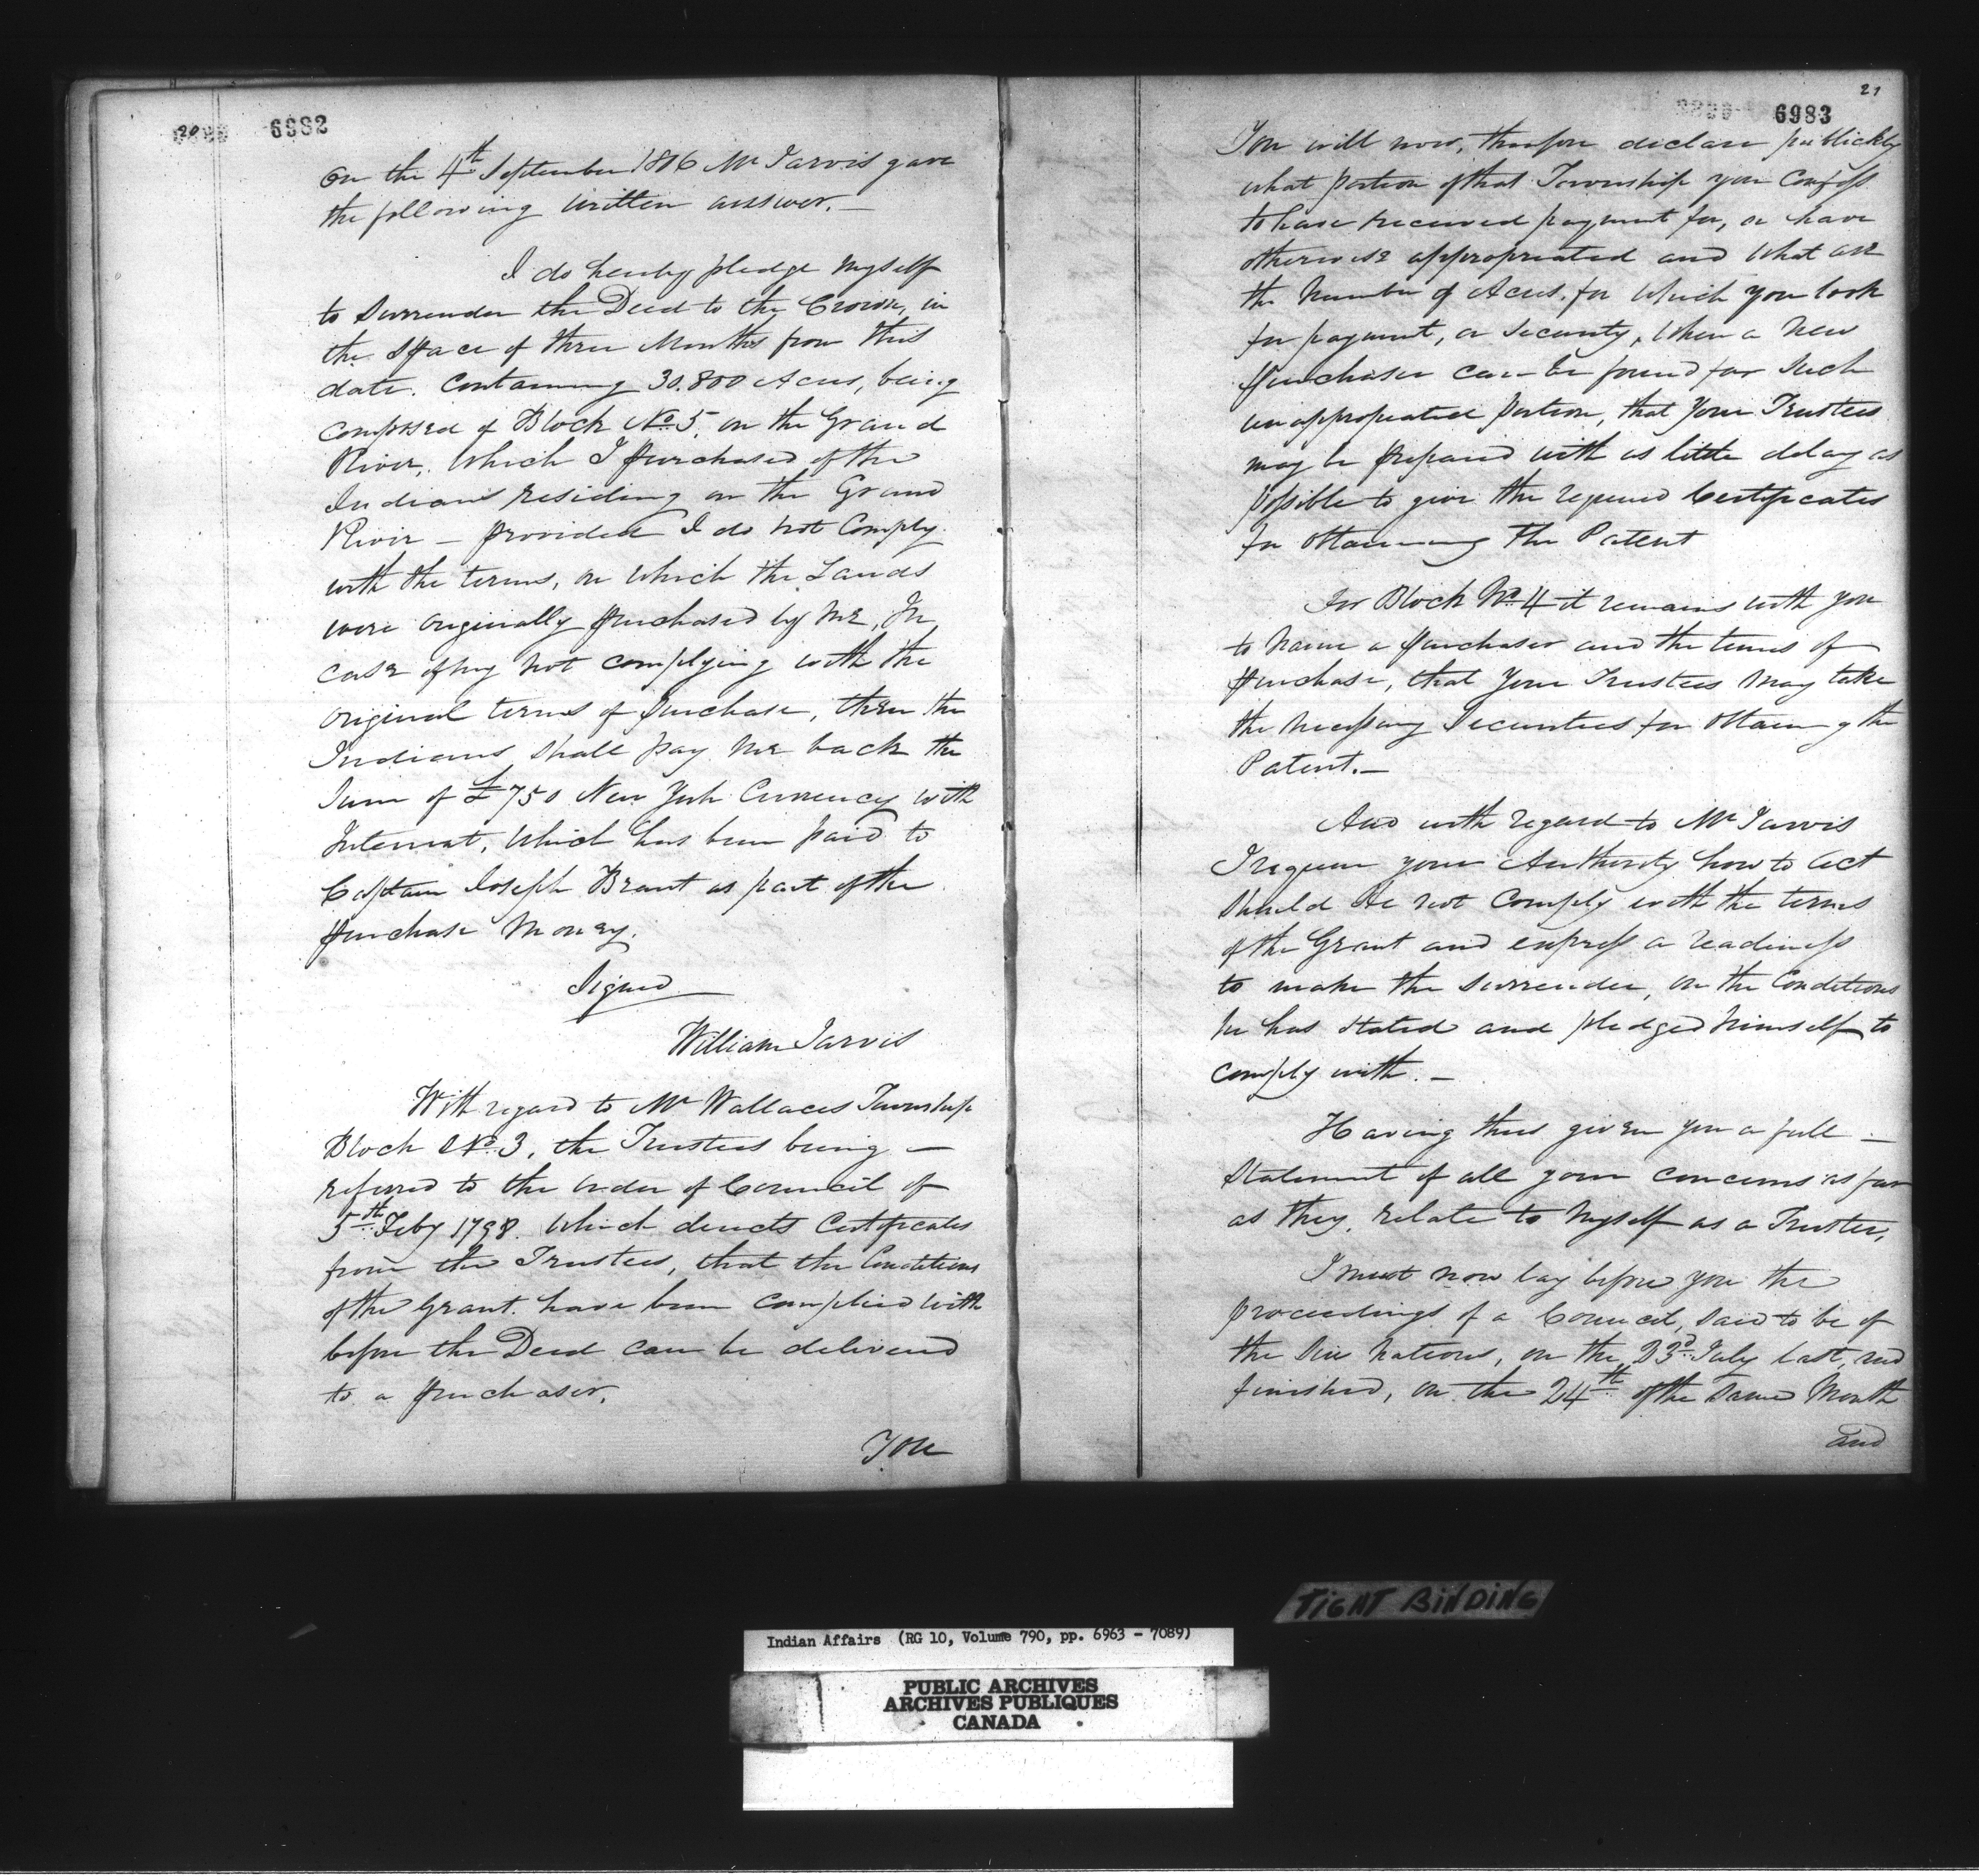 20
6982
On the 4th September 1806 Mr Jarvis gave
the following written answer.—
I do hereby pledge myself
to Surrender the Deed to the Crown, in
the Space of three Months from this
date. Containing 30.800 Acres, being
composed of Block No 5, on the Grand
River, which I purchased of the
Indians residing on the Grand
River — provided I do not Comply
with the terms, on which the Lands
were originally purchased by me, In
case of my not complying with the
original terms of purchase, then the
Indians shall pay me back the
Sum of £750 New York Currency with
Interest, which has been paid to
Captain Joseph Brant as part of the
purchase Money.
Signed
William Jarvis
With regard to Mr Wallaces Township
Block No 3, the Trustees being —
referred to the order of Council of
5th Feby 1798. Which directs Certificates
from the Trustees, that the Conditions
of the Grant have been complied with
before the Deed can be delivered
to a purchaser.
You
21
6983
You will now, therefore declare publickly
what portion of that Township you Confess
to have received payment for, or have
otherwise appropriated and what are
the Number of Acres for which you look
for payment, or Security, When a New
purchaser can be found for Such
unappropriated portion, that your Trustees
may be prepared with as little delay as
possible to give the required Certificates
for obtaining The Patent
For Block No 4 it remains with you
to Name a purchaser and the terms of
purchase, that your Trustees may take
the Necessary Securities for obtaining the
Patent.—
And with regard to Mr Jarvis
I require your Authority how to act
Should He not Comply with the terms
of the Grant and express a readiness
to make the Surrender, on the Conditions
he has stated and pledged himself to
comply with. —
Having thus given you a full —
Statement of all your concerns as far
as they relate to Myself as a Trustee,
I must now lay before you the
proceedings of a Council, said to be of
the Six Nations, on the 23d July last, and
finished, on the 24th of the same Month
and
TIGHT BINDING
Indian Affairs (RG 10, Volume 790, pp. 6963 - 7089)
PUBLIC ARCHIVES
ARCHIVES PUBLIQUES
CANADA